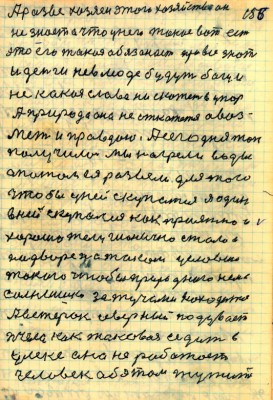 А разве хозяен этого хозяйства он 155
не знает а что у него такое вот есть
это его такая обязаност про все знать
и деги невлюде будут
не какая слава ни скотеть
А природа она не она воз-
мет и правдою. А сегодня так
получилось мы нагрели воды
а потом ея развели для того
чтобы у ней скупатся я один
в ней скупался как приятно и
хорошо жело стало в
на дворе на таком условию
такого чтобы природного нема
солнышко за тучами находится
А ветерок северный подувает
пчела как таковая седит в
улеке она не работает
человек об этом тужит